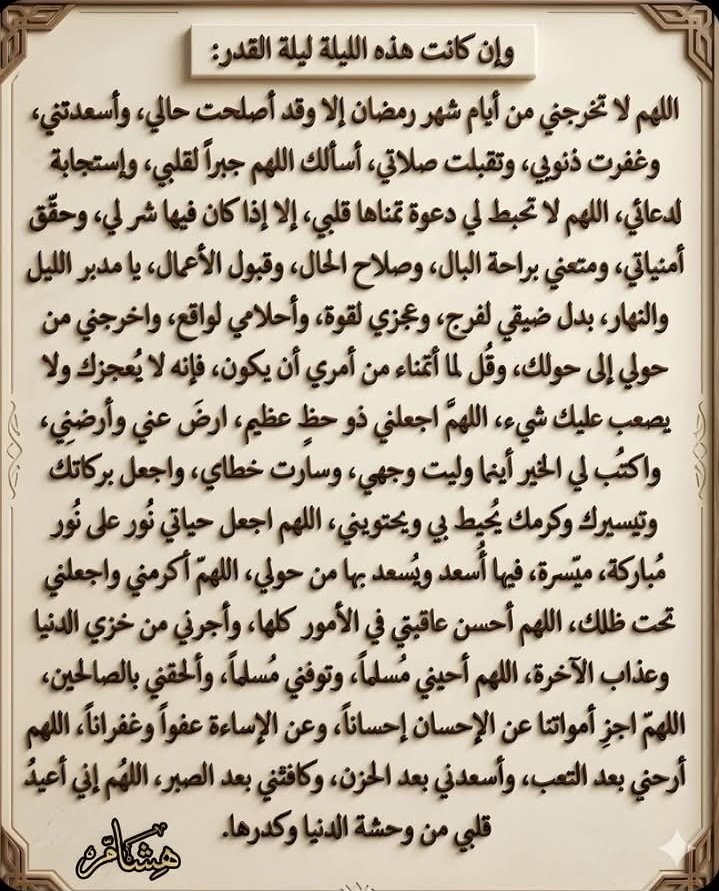 وإن كانت هذه الليلة ليلة القدر:
اللهم لا تخرجني من أيام شهر رمضان إلا وقد أصلحت حالي، وأسعدتني،
وغفرت ذنوبي، وتقبلت صلاتي، أسألك اللهم جبراً لقلبي، وإستجابة
لدعائي، اللهم لا تحبط لي دعوة تمناها قلبي، إلا إذا كان فيها شر لي، وحقّق
أمنياتي، ومتعني براحة البال، وصلاح الحال، وقبول الأعمال، يا مدبر الليل
والنهار، بدل ضيقي لفرج، وعجزي لقوة، وأحلامي لواقع، واخرجني من
حولي إلى حولك، وقُل لما أتمناء من أمري أن يكون، فإنه لا يُعجزك ولا
يصعب عليك شيء، اللهمَّ اجعلني ذو حظٍ عظيم، ارضَ عني وأرضنِي،
واكتُب لي الخير أينما وليت وجهي، وسارت خطاي، واجعل بركاتك
وتيسيرك وكرمك يُحيط بي ويحتويني، اللهم اجعل حياتي نُور على نُور
مُباركة، ميّسرة، فيها أُسعد ويُسعد بها من حولي، اللهمّ أكرمني واجعلني
تحت ظلك، اللهم أحسن عاقبتي في الأمور كلها، وأجرني من خزي الدنيا
وعذاب الآخرة، اللهم أحيني مُسلماً، وتوفني مُسلماً، وألحقني بالصالحين،
اللهمّ اجزِ أمواتنا عن الإحسان إحساناً، وعن الإساءة عفواً وغفراناً، اللهم
أرحني بعد التعب، وأسعدني بعد الحزن، وكافئني بعد الصبر، اللهُم إني أعيدُ
قلبي من وحشة الدنيا وكدرها.
هشام